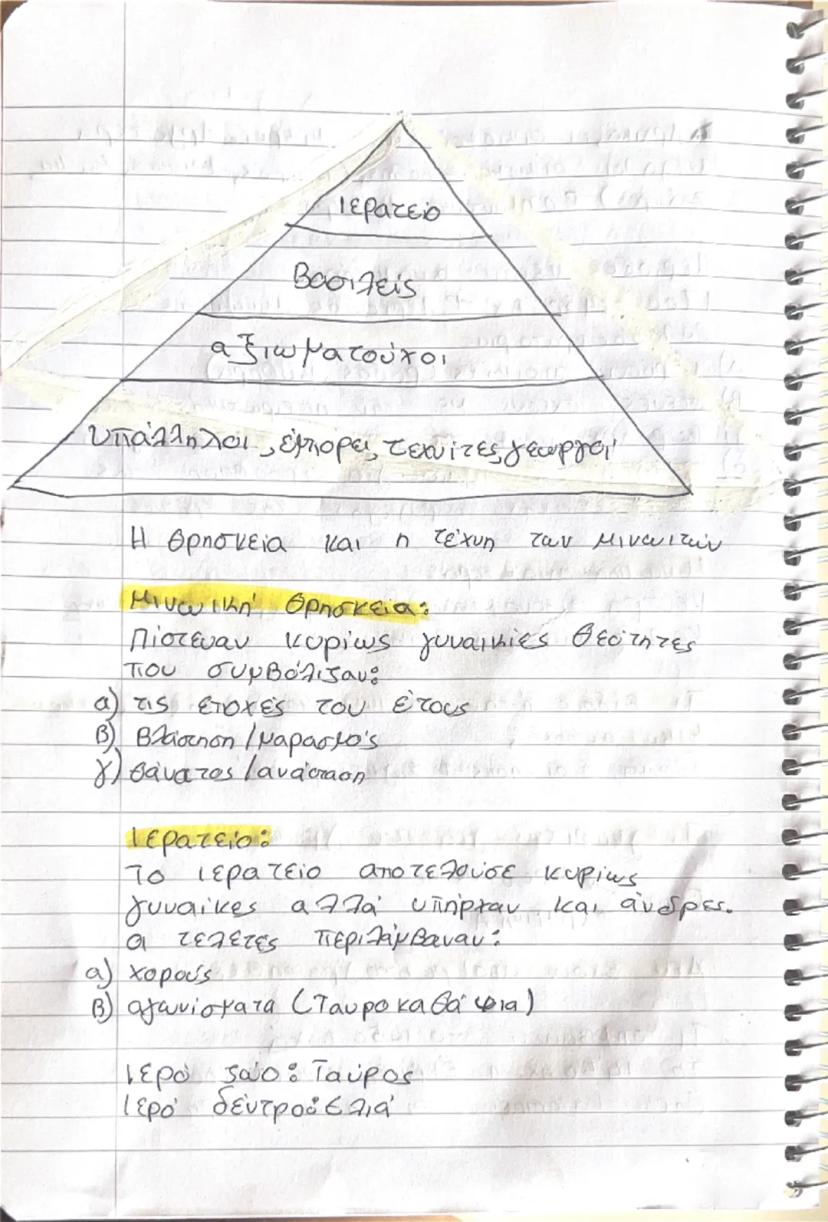 Ιερατείο
Βασιλείς
αξιωματούχοι
υπάλληλοι, έμποροι, τεχνίτες, γεωργοί
Η θρησκεία και η τέχνη των μινωιτών
Μινωική θρησκεία:
Πίστευαν κυρίως γυναικίες θεότητες
που συμβόλιζαν:
α) τις εποχές του έτους
β) Βλάστηση/μαρασμός
γ) θάνατος/ανάσταση
Ιερατείο:
Το ιερατείο αποτελούσε κυρίως
γυναίκες αλλά υπήρχαν και άνδρες.
οι τελετές περιλάμβαναν:
α) χορούς
β) αγωνίσματα (Ταυροκαθάψια)
Ιερό ζώο: Ταύρος
Ιερό δέντρο: ελιά